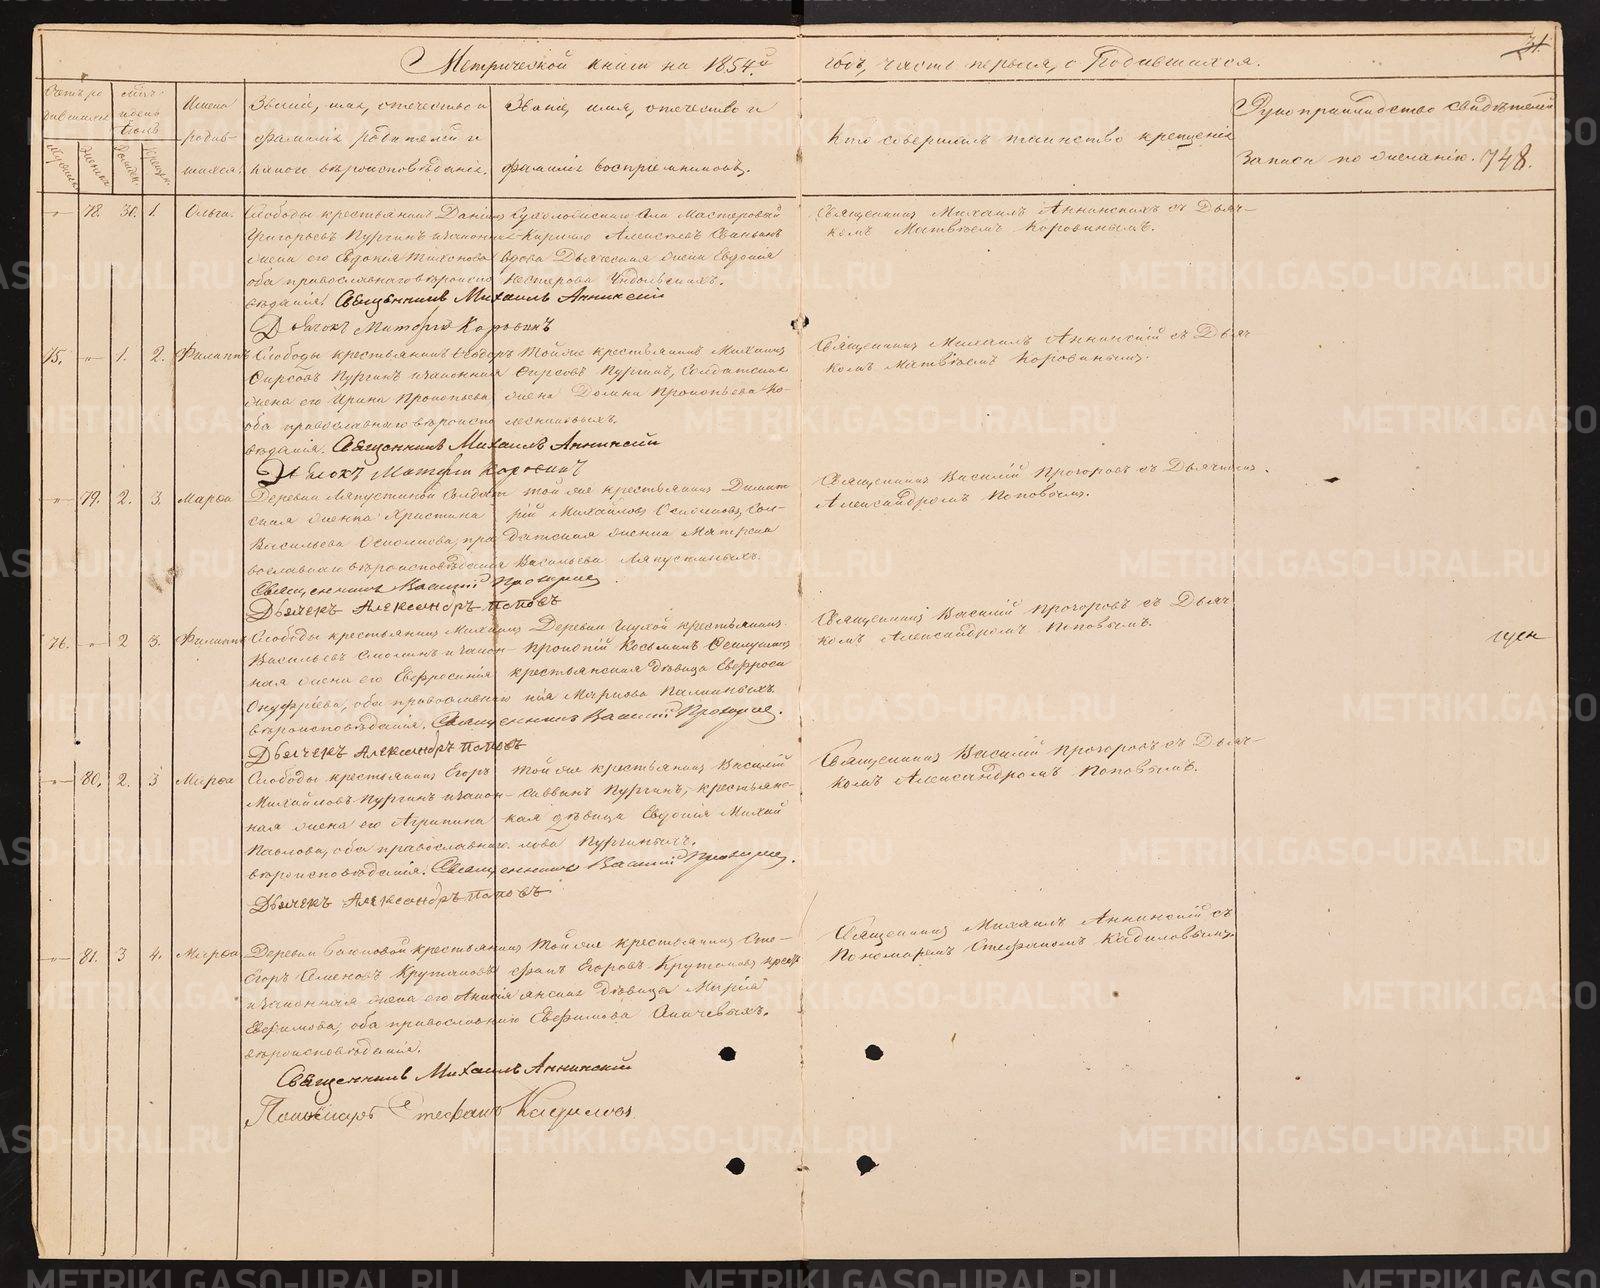 Метрической книги на 1854.й годъ, часть первая, о Родившихся.
31.
Счетъ родившихся
Мужеска
Женска
Имена родившихся.
Званіе, имя, отчество и фамилія родителей и какого вѣроисповѣданія.
Званіе, имя, отчество и фамилія воспріемниковъ.
Кто совершалъ таинство крещенія
Рукоприкладство свидѣтелей записи по желанію. 748.
78. 30. 1. Ольга.
Слободы крестьянинъ Даніилъ
Григорьевъ Пургинъ и законная
жена его Евдокія Тихонова
оба православнаго вѣроиспо
вѣданія. Священникъ Михаилъ Аннинскій
Дьячокъ Матѳій Коровинъ
Мастеровый
Кирилло Алексѣевъ
вдова Дьяческая жена Евдокія
Нестерова
Священникъ Михаилъ Аннинскихъ съ Дьяч-
комъ Матвѣемъ Коровинымъ.
75. 1. 2. Филиппъ
Слободы крестьянинъ Ѳедоръ
Фирсовъ Пургинъ и законная
жена его Ирина Прокопьева
оба православнаго вѣроиспо
вѣданія. Священникъ Михаилъ Аннинскій
Дьячокъ Матѳій Коровинъ
Той же крестьянинъ Михаилъ
Фирсовъ Пургинъ, Солдатская
жена Домна Прокопьева Ко-
лесниковыхъ.
Священникъ Михаилъ Аннинскій съ Дьяч-
комъ Матвѣемъ Коровинымъ.
79. 2. 3. Марѳа
Деревни Ляпустиной Солдат
ская женка Христина
Васильева Осколкова, пра
вославнаго вѣроисповѣданія
Священникъ Василій Прозоровъ
Дьячекъ Александръ Поповъ
Той же крестьянинъ Димит
рій Михайловъ Осколковъ, Сол-
датская женка Матрена
Васильева Ляпустиныхъ.
Священникъ Василій Прозоровъ съ Дьячкомъ
Александромъ Поповымъ.
76. 2 3. Филиппъ
Слободы крестьянинъ Михаилъ
Васильевъ Смолинъ и закон-
ная жена его Евфросинія
Онуфріева, оба православнаго
вѣроисповѣданія. Священникъ Василій Прозоровъ.
Дьячекъ Александръ Поповъ
Деревни Глухой крестьянинъ
Прокопій Косьминъ
крестьянская дѣвица Евфроси
нія Маркова Палкиныхъ.
Священникъ Василій Прозоровъ съ Дьяч
комъ Александромъ Поповымъ.
80. 2. 3 Марѳа
Слободы крестьянинъ Егоръ
Михайловъ Пургинъ и закон-
ная жена его Агрипина
Павлова, оба православнаго
вѣроисповѣданія. Священникъ Василій Прозоровъ.
Дьячекъ Александръ Поповъ
Той же крестьянинъ Василій
Саввинъ Пургинъ, крестьянс-
кая дѣвица Евдокія Михай
лова Пургиныхъ.
Священникъ Василій Прозоровъ съ Дьяч-
комъ Александромъ Поповымъ.
81. 3 4. Марѳа
Деревни крестьянинъ
Егоръ Семеновъ Крутаковъ
и законная жена его Анисія
Евфимова, оба православнаго
вѣроисповѣданія.
Священникъ Михаилъ Аннинскій
Пономарь Стефанъ Кадиловъ
Той же крестьянинъ Сте-
фанъ Егоровъ Крутаковъ, крестьянская дѣвица Марія
Евфимова
Священникъ Михаилъ Аннинскій съ
Пономаремъ Стефаномъ Кадиловымъ.
METRIKI.GASO-URAL.RU